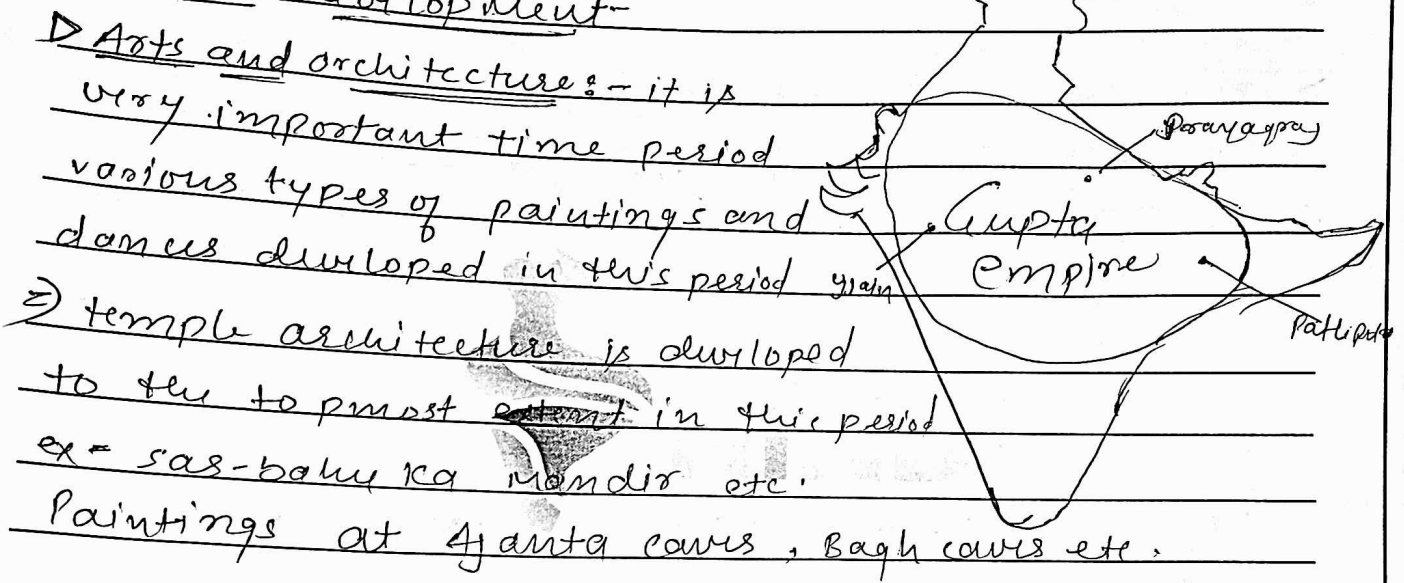 1) Arts and architecture:- it is
very important time period
various types of paintings and
dances developed in this period
2) temple architecture is developed
to the topmost extent in this period
ex = sas-bahu ka mandir etc.
Paintings at Ajanta caves, Bagh caves etc.
Prayagraj
Gupta
empire